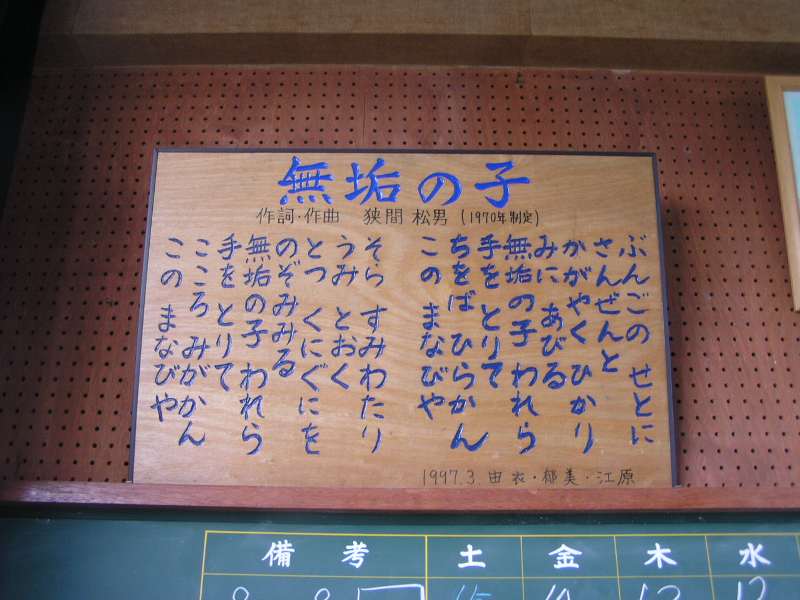 無垢の子
作詞・作曲　狭間 松男 (1970年制定)
ぶんごの せとに
さんぜんと
かがやく ひかり
みに あびる
無垢の子 われら
手を とりて
ちをば ひらかん
この まなびや
そら すみわたり
うみ とおく
とつ くにぐにを
のぞみみる
無垢の子 われら
手を とりて
こころ みがかん
この まなびや
1997.3. 由衣・郁美・江原
備考 土 金 木 水